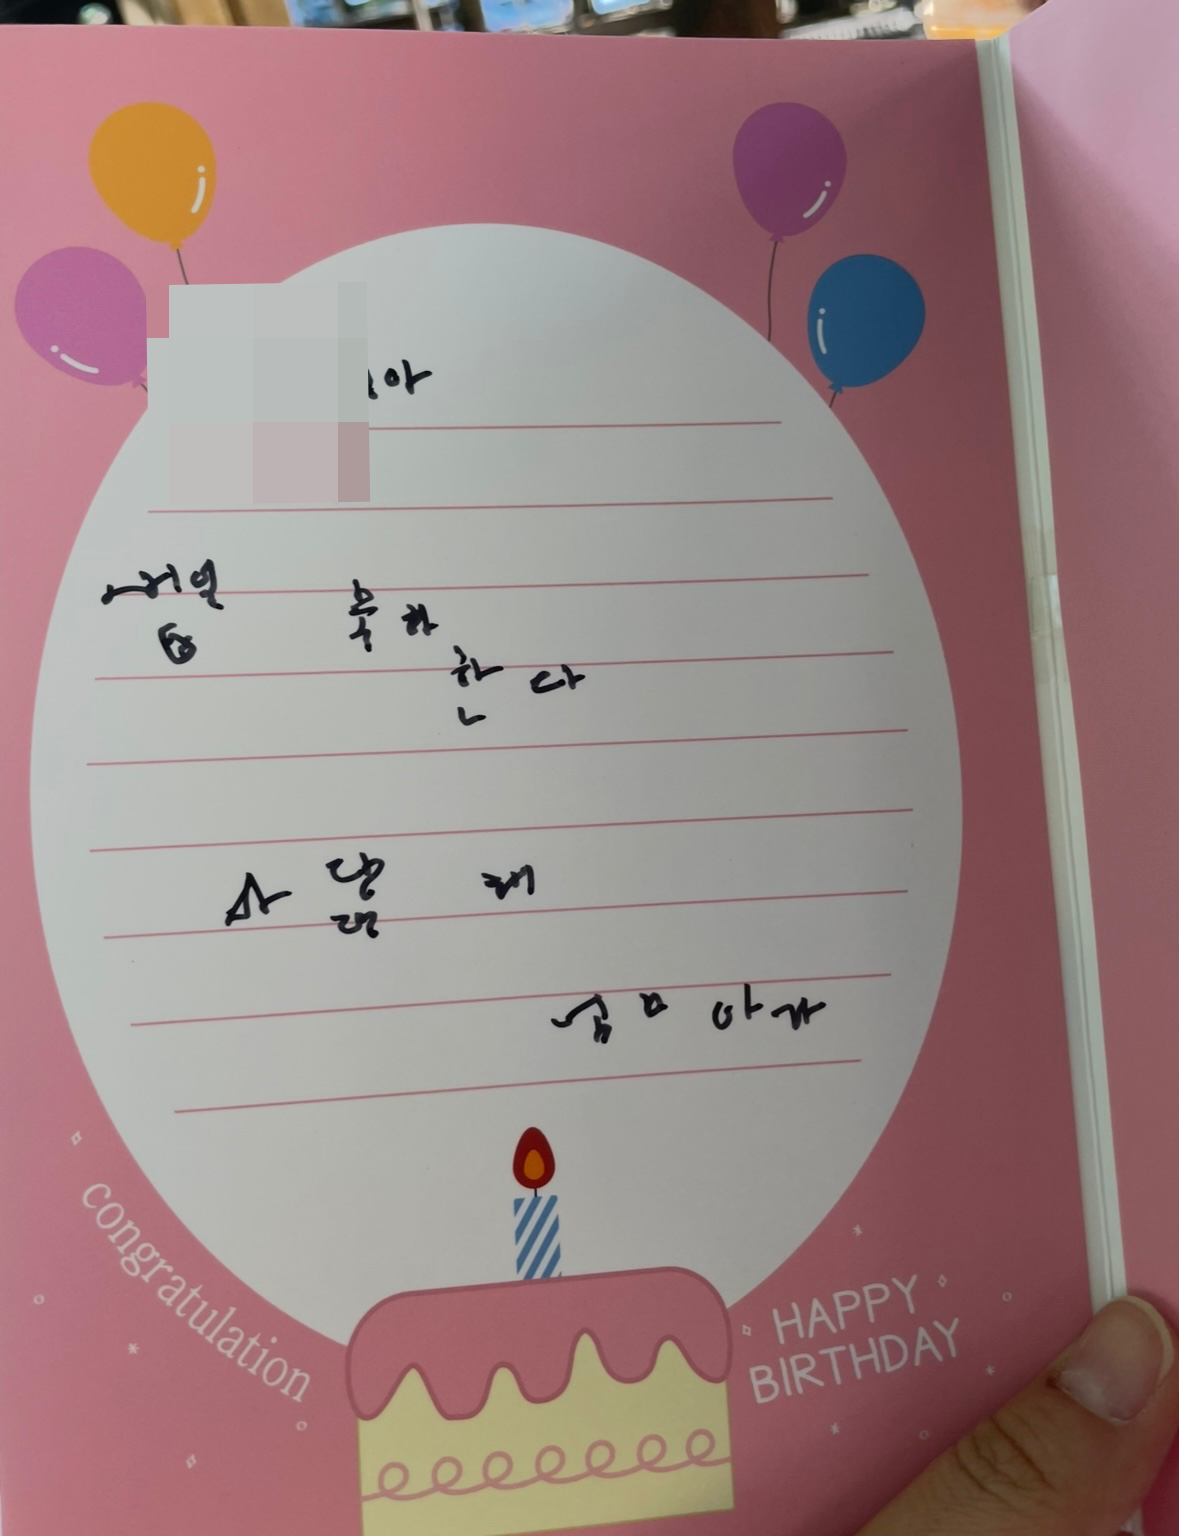 아
생일 축하
한다
사랑해
congratulation
HAPPY
BIRTHDAY